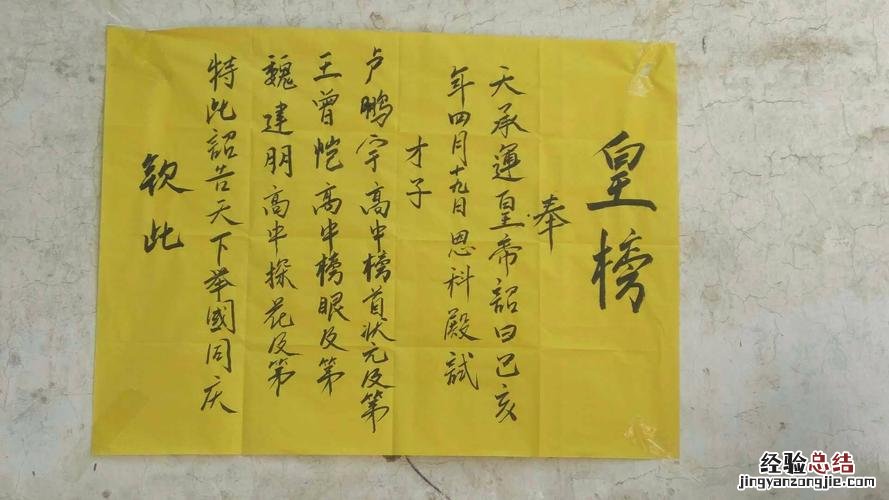 皇榜
奉
天承運皇帝詔曰己亥
年四月十九日恩科殿試
才子
卢鹏宇高中榜首状元及第
王曾恺高中榜眼及第
魏建朋高中探花及第
特此詔告天下举國同庆
钦此
经验总结
jingyanzongjie.com